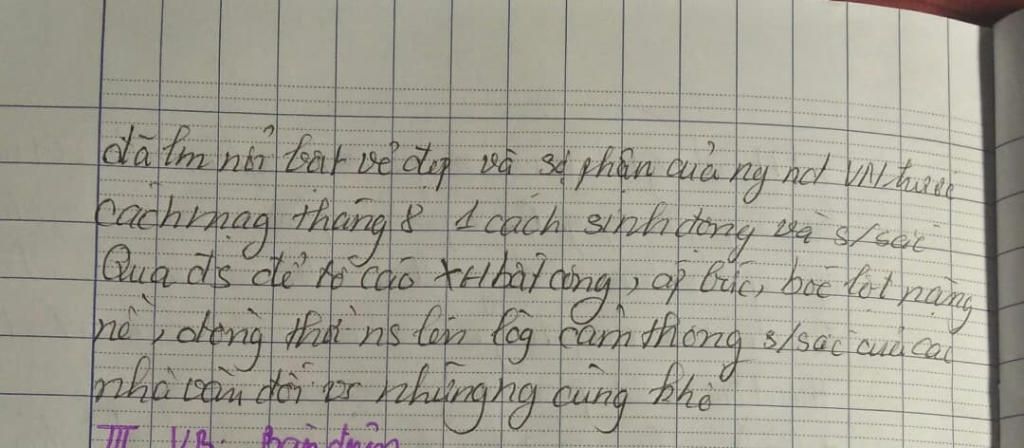 đã lm nổi bật vẻ đẹp và số phận của ng nd VN trước
cáchmạg tháng 8 1 cách sinh động và s/sắc
Qua đs để tố cáo XH bất công, áp bức, bóc lột nặng
nề, đồng thời ns lên lòg cảm thông s/sắc của các
nhà văn đối vs nhữngng cùng khổ
III VB: